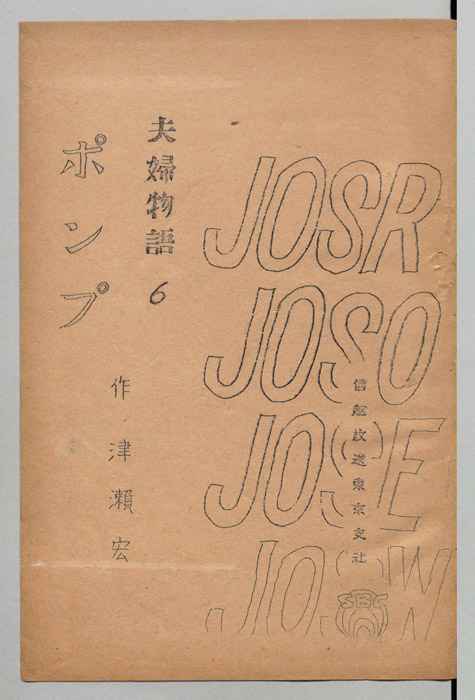 JOSR
JOSO
JOSE
JOSW
信越放送東京支社
SBC
夫婦物語 6
ポンプ
作 津瀬宏